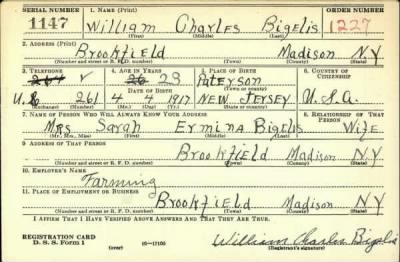 SERIAL NUMBER 1. NAME (Print) ORDER NUMBER
1147 William Charles Bigelis 1227
(First) (Middle) (Last)
2. ADDRESS (Print)
Brookfield Madison N Y
(Number and street or R. F. D. number) (Town) (County) (State)
3. TELEPHONE 4. AGE IN YEARS 5. PLACE OF BIRTH 6. COUNTRY OF CITIZENSHIP
264 26 23 Paterson
DATE OF BIRTH (Town or county)
261 4 4 1917 NEW JERSEY U.S.A.
(Exchange) (Number) (Mo.) (Day) (Yr.) (State or country)
7. NAME OF PERSON WHO WILL ALWAYS KNOW YOUR ADDRESS 8. RELATIONSHIP OF THAT PERSON
Mrs Sarah Ermina Bigelis Wife
(Mr., Mrs., Miss) (First) (Middle) (Last)
9. ADDRESS OF THAT PERSON
Brookfield Madison N Y
(Number and street or R. F. D. number) (Town) (County) (State)
10. EMPLOYER'S NAME
Farming
11. PLACE OF EMPLOYMENT OR BUSINESS
Brookfield Madison N Y
(Number and street or R. F. D. number) (Town) (County) (State)
I AFFIRM THAT I HAVE VERIFIED ABOVE ANSWERS AND THAT THEY ARE TRUE.
REGISTRATION CARD
D. S. S. Form 1 (over) 16-17105 William Charles Bigelis
(Registrant's signature)